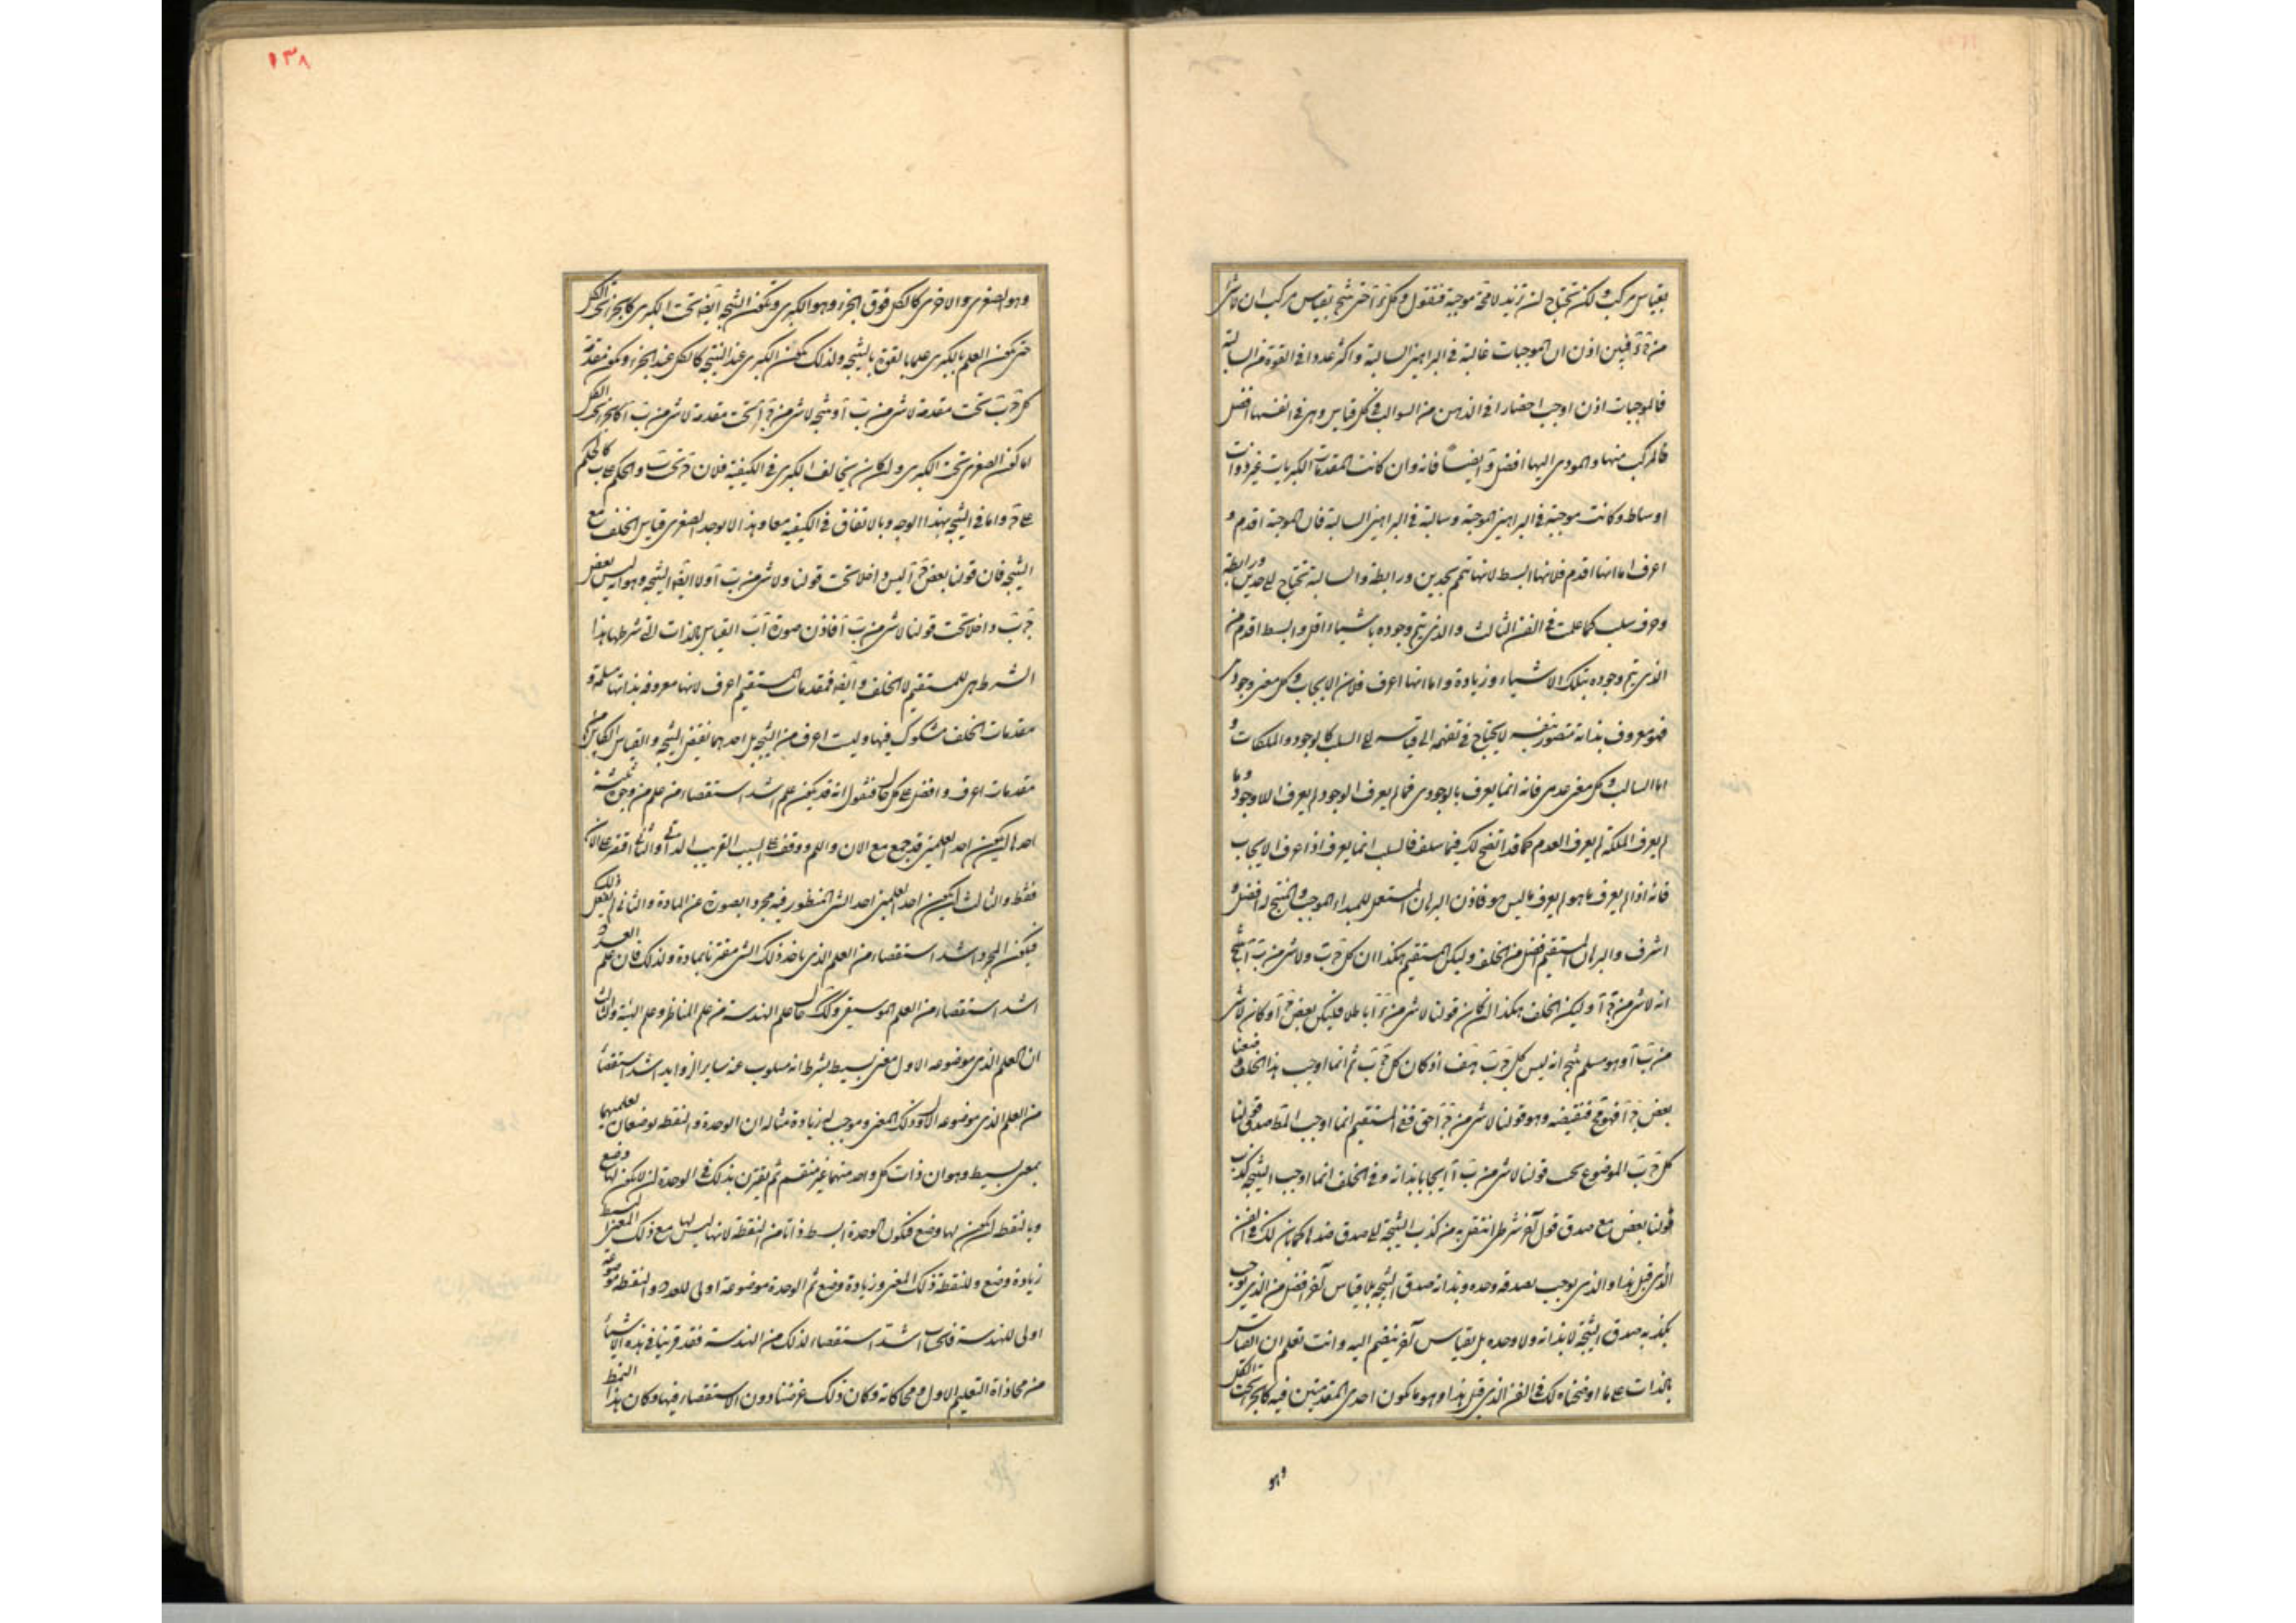 بقياس مركب ولكن تحتاج ان تزيد لا محة موجبة فنقول وكل آخر ينتج بقياس مركب ان لا شى
فبين اذن ان الموجبات غالبة فى البراهين السالبة واكثر عددا فى القوة من السالبة
فالموجبات اذن اوجب احضارا فى الذهن من السوالب فى كل قياس وهى فى انفسها افضل
فالمركب منها والمودى اليها افضل وايضا فانه وان كانت المقدمات الكبريات غير ذوات
اوساط وكانت موجبة فى البراهين الموجبة وسالبة فى البراهين السالبة فان الموجبة اقدم و
اعرف اما انها اقدم فلانها ابسط لانها تتم بحدين ورابطة والسالبة تحتاج الى حدين ورابطة
وحرف سلب كما علمت فى الفن الثالث والذى يتم وجوده باشياء اقل وابسط اقدم من
الذى يتم وجوده بتلك الاشياء وزيادة واما انها اعرف فلان الايجاب وكل معنى وجودى
فهو معروف بذاته متصور بنفسه لا يحتاج فى تفهمه الى قياسه الى السلب كالوجود والملكات و
اما السالب وكل معنى عدمى فانه انما يعرف بالوجودى فما لم يعرف الوجود لم يعرف اللاوجود وما
لم يعرف الملكة لم يعرف العدم كما قد اتضح لك فيما سلف فالسلب انما يعرف اذا عرف الايجاب
فانه اذا لم يعرف ما هو لم يعرف ما ليس هو فاذن البرهان المستعمل للمبداء الموجب والمنتج له افضل و
اشرف والبرهان المستقيم افضل من الخلف وليكن المستقيم هكذا ان كل ج ب ولا شى من ب آ ينتج
انه لا شى من ج آ وليكن الخلف هكذا ان كان قولنا لا شى من ج آ باطلا فليكن بعض ج آ وكان لا شى
من ب آ وهو مسلم ينتج انه ليس كل ج ب هف اذ كان كل ج ب ثم انما اوجب هذا الخلف وضعنا
بعض ج آ فهو مح فنقيضه وهو قولنا لا شى من ج آ حق ففى المستقيم انما اوجب المط صدق قولنا
كل ج ب الموضوع تحت قولنا لا شى من ب آ ايجابا بذاته وفى الخلف انما اوجب النتيجة كذب
قولنا بعض مع صدق قول آخر شرطى انتقل به من كذب النتيجة الى صدق ضدها كما بان لك فى الفن
الذى قبل هذا والذى يوجب بصدقه وحده وبذاته صدق النتيجة بلا قياس آخر افضل من الذى يوجب
بكذبه صدق النتيجة لا بذاته ولا وحده بل بقياس آخر ينضم اليه وانت تعلم ان القياس
بالذات على ما اوضحناه لك فى الفن الذى قبل هذا وهو ما يكون احدى المقدمتين فيه كالجزء تحت الكل
وهو
١٣٨
وهو الصغرى والاخرى كالكل فوق الجزء وهو الكبرى وتكون النتيجة ايضه تحت الكبرى كالجزء تحت الكل
حتى يكون العلم بالكبرى علما بالقوة بالنتيجة ولذلك تكون الكبرى عند النتيجة كالكل عند الجزء ويكون مقدمة
كل ج ب تحت مقدمة لا شى من ب آ ونتيجة لا شى من ج آ تحت مقدمة لا شى من ب آ كالجزء تحت الكل
اما كون الصغرى تحت الكبرى وان كان يخالف الكبرى فى الكيفية فلان ج تحت ب والحكم على ب كالحكم
على ج واما فى النتيجة بهذا الوجه وبالاتفاق فى الكيفية معا وهذا لا يوجد لصغرى قياس الخلف مع
النتيجة فان قولنا بعض ج آ ليس داخلا تحت قولنا ولا شى من ب آ ولا ايضه النتيجة وهو انه ليس بعض
ج ب داخلا تحت قولنا لا شى من ب آ فاذن صورة القياس بالذات التى شرطها هذا
الشرط هى للمستقيم لا للخلف وايضه فمقدمات المستقيم اعرف لانها معروفة بذاتها مسلمة و
مقدمات الخلف مشكوك فيها وليست اعرف من النتيجة بل احدهما نقيض النتيجة والقياس الكاين من
مقدمات اعرف وافضل على كل حال فنقول انه قد يكون علم اشد استقصاء من علم من وجوه ثلثة
احدها ان يكون احد العلمين قد جمع مع الان واللم ووقف على السبب القريب الذاتى والثانى اقتصر على الان
فقط والثالث ان يكون احد العلمين اخذ الشى المنظور فيه مجردا بصورة عن المادة والثانى لم يفعل ذلك
فيكون المجرد اشد استقصاء من العلم الذى ياخذ ذلك الشى مقترنا بمادة ولذلك فان علم العدد
اشد استقصاء من العلم الموسيقى وكك حال علم الهندسة من علم المناظر وعلم الهيئة والثالث
ان العلم الذى موضوعه الاول معنى بسيط بشرط انه مسلوب عنه ساير الزوايد اشد استقصاء
من العلم الذى موضوعه الاول ذلك المعنى وموجب له زيادة مثاله ان الوحدة والنقطة يوضعان لعلميهما
بمعنى بسيط وهو ان ذات كل واحد منهما غير منقسم ثم يقترن بذلك فى الوحدة ان لا يكون لها وضع
وبالنقطة ان يكون لها وضع فتكون الوحدة ابسط ذاتا من النقطة لانها ليس لها مع ذلك المعنى البسيط
زيادة وضع وللنقطة ذلك المعنى وزيادة وضع ثم الوحدة موضوعة اولى للعدد والنقطة موضوعة
اولى للهندسة فالحساب اشد استقصاء لذلك من الهندسة فقد قربنا فى هذه الاشياء
من محاذاة التعليم الاول ومحاكاته وكان ذلك غرضنا دون الاستقصاء فيها وكان هذا النمط